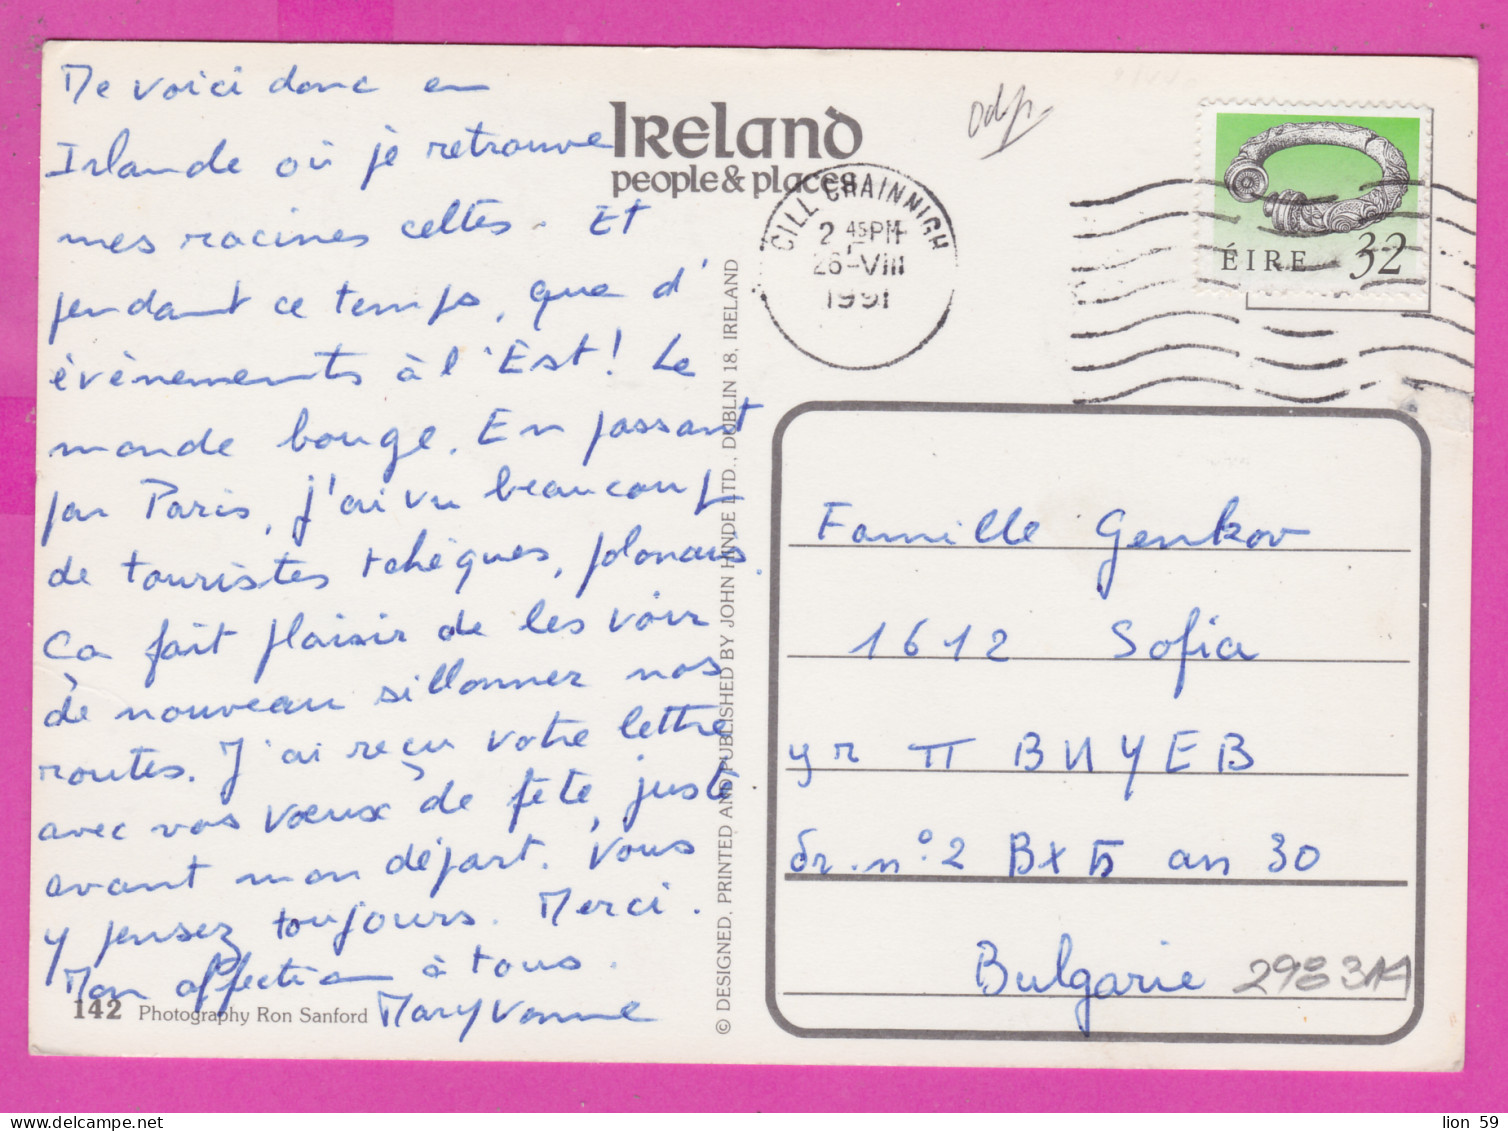 Me voici donc en
Irlande où je retrouve
mes racines celtes. Et
pendant ce temps, que d'
évènements à l'Est! Le
monde bouge. En passant
par Paris, j'ai vu beaucoup
de touristes tchèques, polonais.
Ca fait plaisir de les voir
de nouveau sillonner nos
routes. J'ai reçu votre lettre
avec vos vœux de fête, juste
avant mon départ. Vous
y pensez toujours. Merci.
Mon affection à tous.
Maryvonne
142 Photography Ron Sanford
IRELAND
people & places
© DESIGNED, PRINTED AND PUBLISHED BY JOHN HINDE LTD., DUBLIN 18, IRELAND
CILL CHAINNIGH
2 45PM
26-VIII
1991
ÉIRE 32
Famille Genkov
1612 Sofia
yr П ВИУЕВ
бr. n° 2 Вх Б an 30
Bulgarie
298311
lion 59